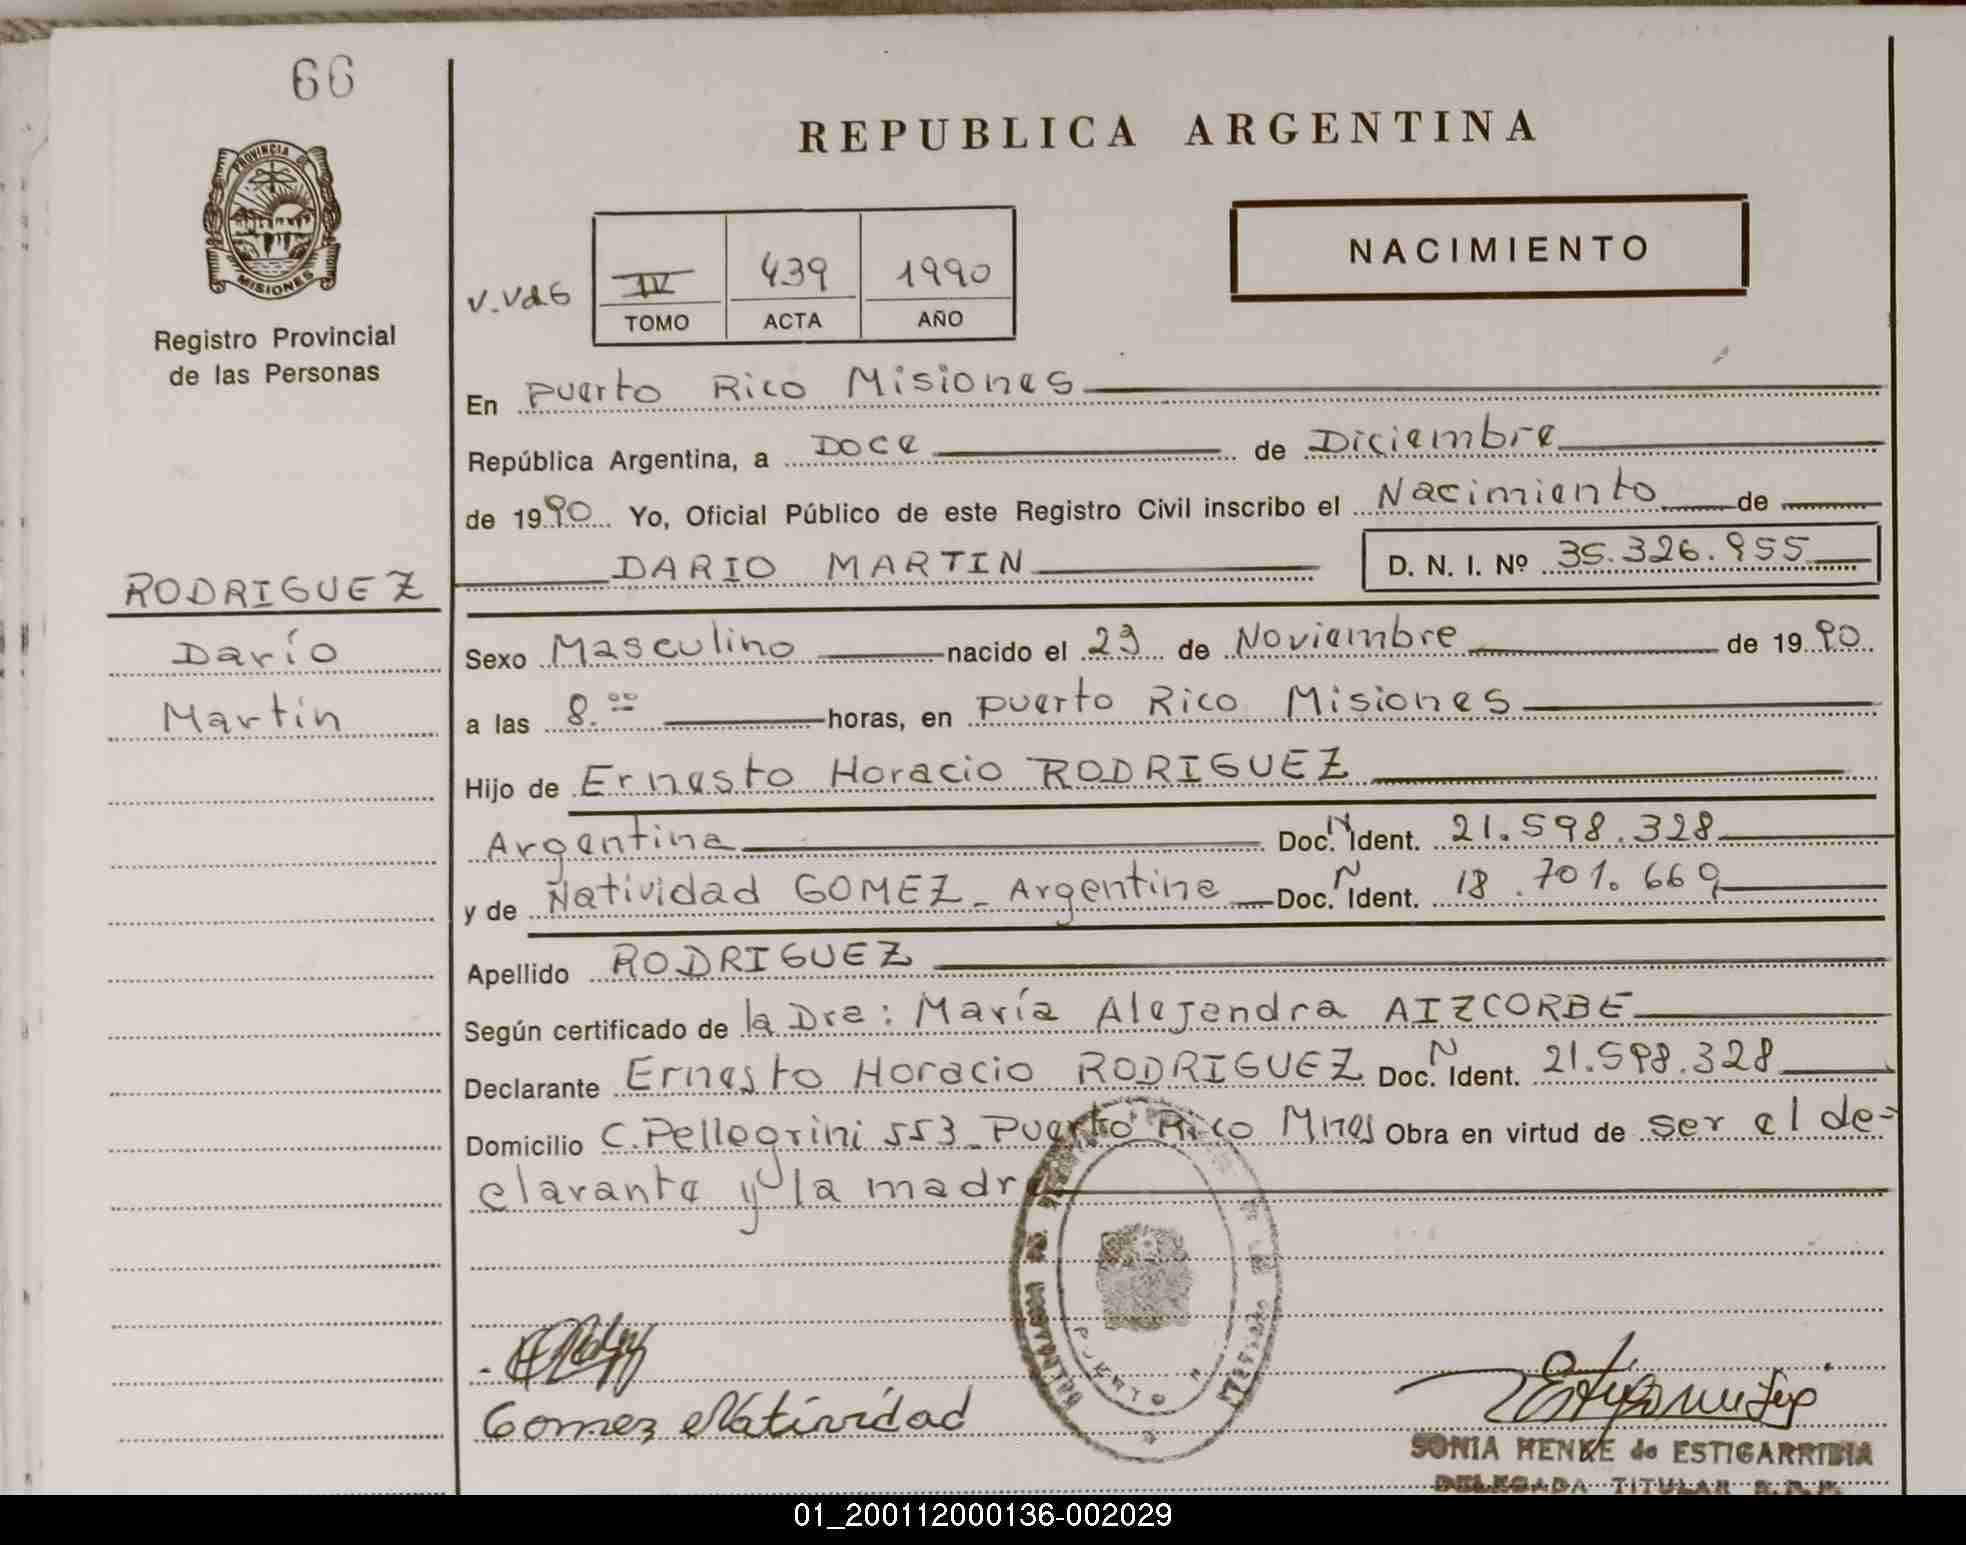 66
PROVINCIA DE
MISIONES
Registro Provincial
de las Personas
RODRIGUEZ
Darío
Martín
REPUBLICA ARGENTINA
NACIMIENTO
V. Vdg IV 439 1990
TOMO ACTA AÑO
En Puerto Rico Misiones
República Argentina, a Doce de Diciembre
de 1990 Yo, Oficial Público de este Registro Civil inscribo el Nacimiento de
DARIO MARTIN D. N. I. Nº 35.326.955
Sexo Masculino nacido el 29 de Noviembre de 1990
a las 8.00 horas, en Puerto Rico Misiones
Hijo de Ernesto Horacio RODRIGUEZ
Argentina Doc. N Ident. 21.598.328
y de Natividad GOMEZ - Argentina Doc. N Ident. 18.701.669
Apellido RODRIGUEZ
Según certificado de la Dra: María Alejandra AIZCORBE
Declarante Ernesto Horacio RODRIGUEZ Doc. N Ident. 21.598.328
Domicilio C. Pellegrini 553 - Puerto Rico Mnes Obra en virtud de ser el de-
clarante y la madre
Gomez Natividad
SONIA HENKE de ESTIGARRIBIA
DELEGADA TITULAR R.P.P.
01_200112000136-002029